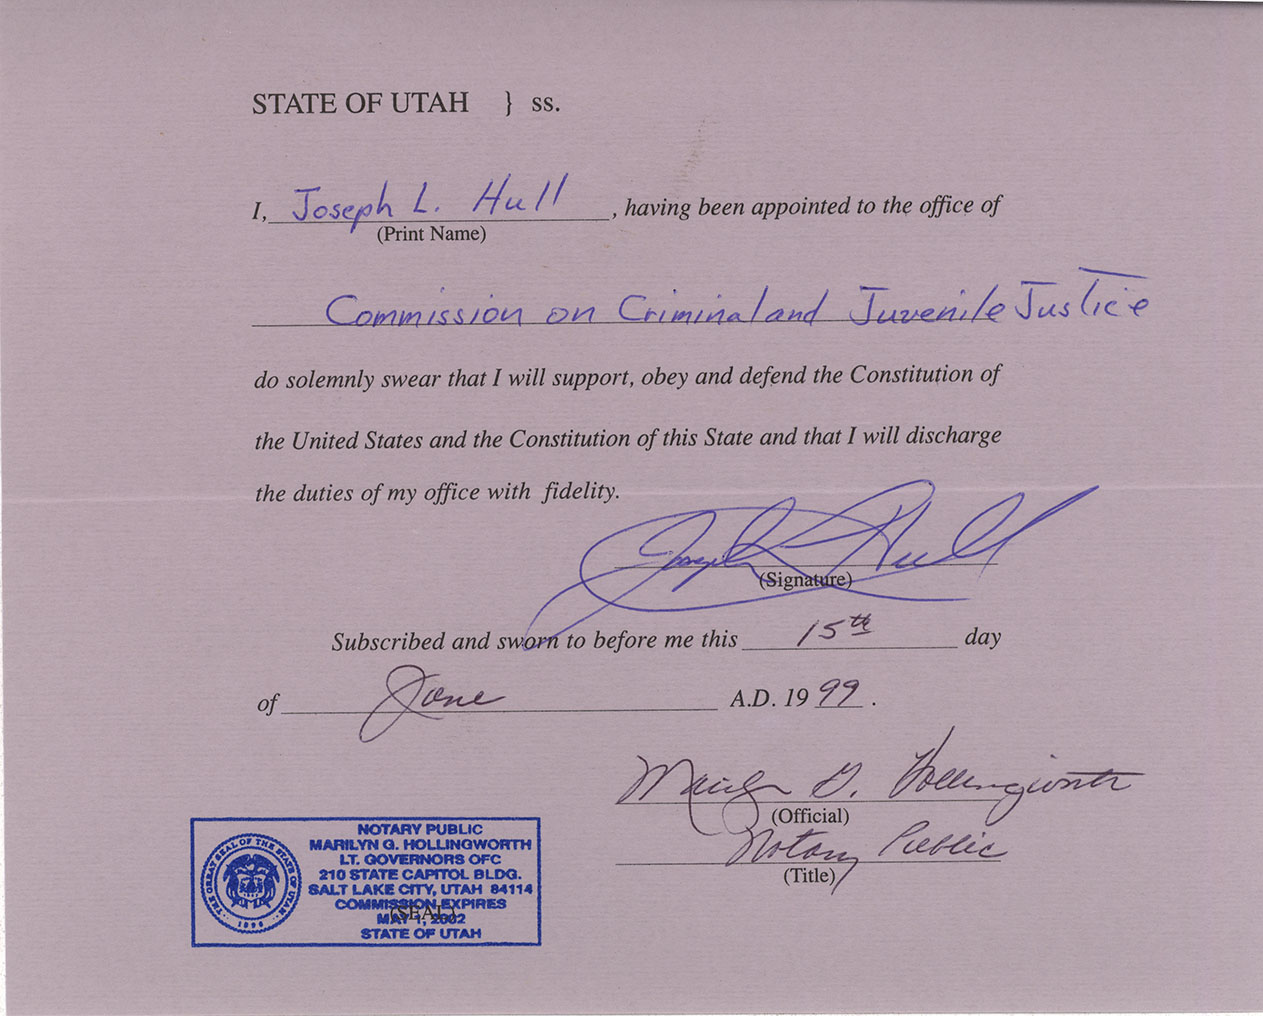 STATE OF UTAH } ss.
I, Joseph L. Hull, having been appointed to the office of
(Print Name)
Commission on Criminal and Juvenile Justice
do solemnly swear that I will support, obey and defend the Constitution of
the United States and the Constitution of this State and that I will discharge
the duties of my office with fidelity.
Joseph L Hull
(Signature)
Subscribed and sworn to before me this 15th day
of June A.D. 1999.
Marilyn G. Hollingworth
(Official)
Notary Public
(Title)
NOTARY PUBLIC
MARILYN G. HOLLINGWORTH
LT. GOVERNORS OFC
210 STATE CAPITOL BLDG.
SALT LAKE CITY, UTAH 84114
COMMISSION EXPIRES
(SEAL)
MAY 1, 2002
STATE OF UTAH
THE GREAT SEAL OF THE STATE OF UTAH
1896